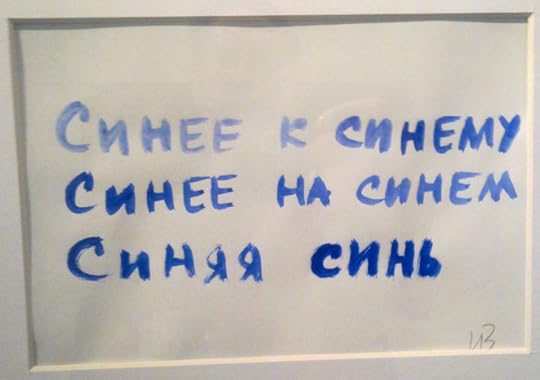 Синее к синему
Синее на синем
Синяя синь